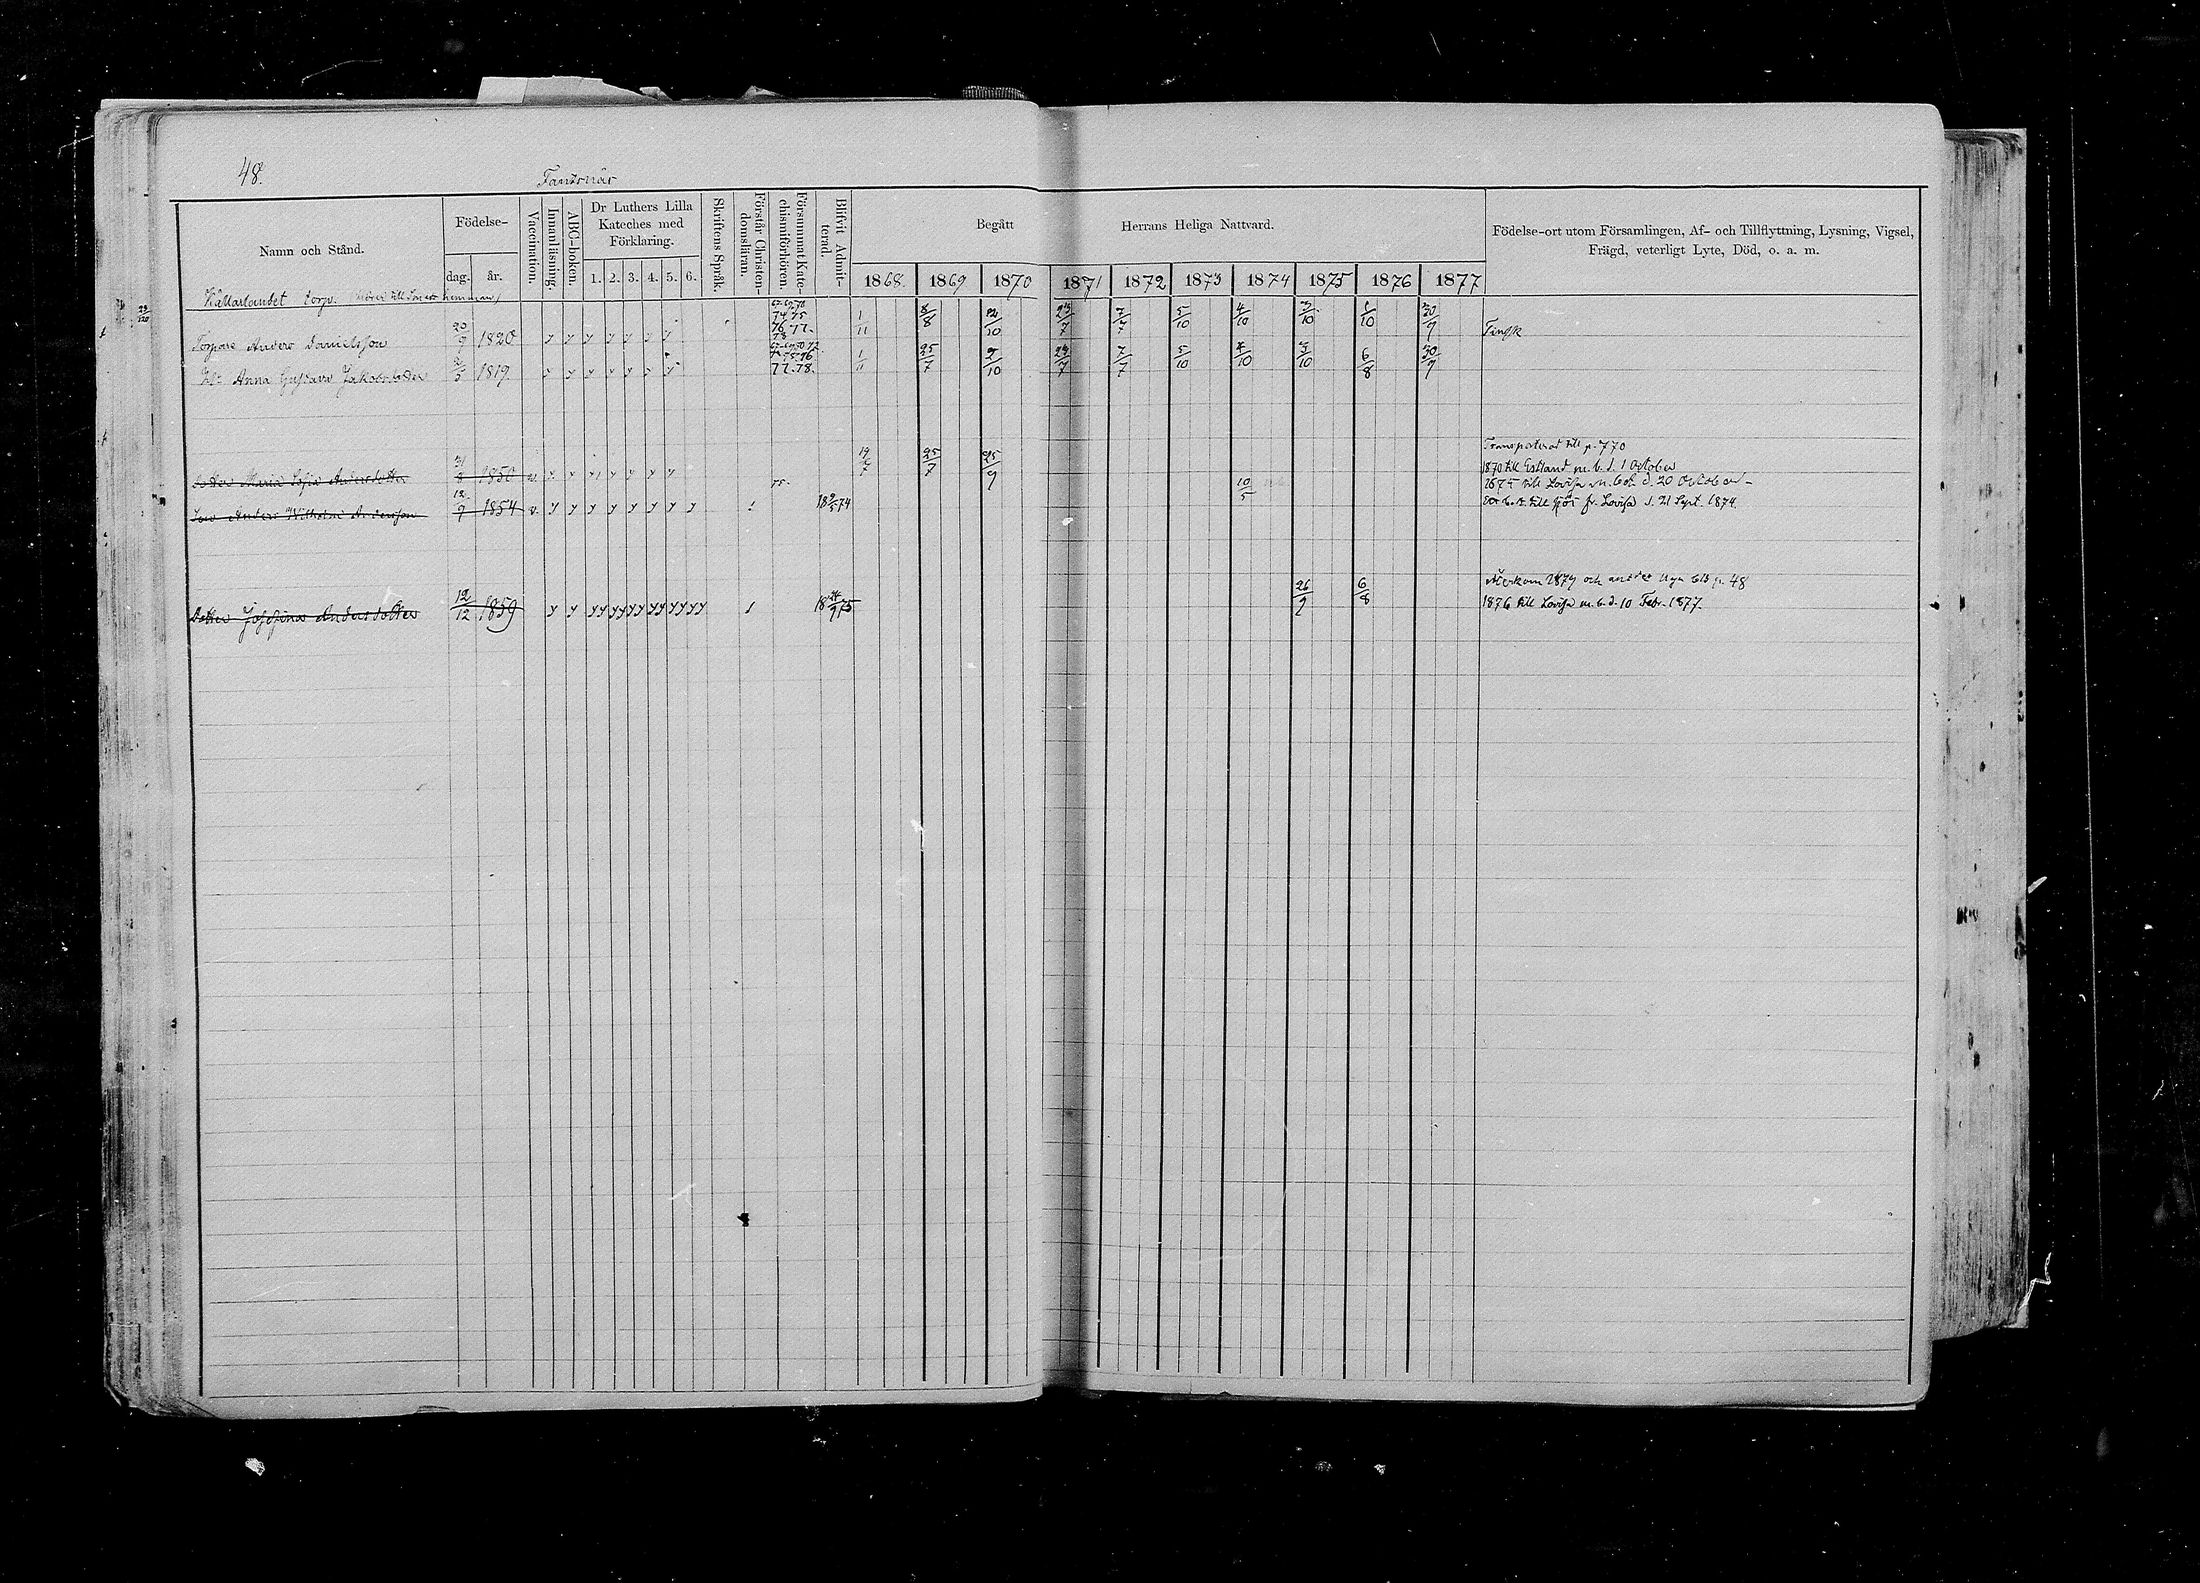 48.
Fantsnäs
Namn och Stånd.
Födelse-
dag. år.
Vaccination.
Innanläsning.
ABC-boken.
Dr Luthers Lilla Kateches med Förklaring.
1. 2. 3. 4. 5. 6.
Skriftens Språk.
Förstår Christen-domsläran.
Försummat Kate-chismiförhören.
Blifvit Admit-terad.
Begått Herrans Heliga Nattvard.
1868. 1869 1870 1871 1872 1873 1874 1875 1876 1877
Födelse-ort utom Församlingen, Af- och Tillflyttning, Lysning, Vigsel,
Frägd, veterligt Lyte, Död, o. a. m.
torp.
74 75
76 77.
78
Torpare Anders Danielsson 20/9 1820 y y y y y y y 1/11 8/8 2/10 23/7 7/7 5/10 4/10 3/10 1/10 30/9
Anna Gustava Jakobsdotter 1819 y y y y y y y 77.78. 1/11 25/7 9/10 23/7 7/7 5/10 4/10 3/10 6/8 30/9
Transporterad till p. 770
Dotter Maria Sofia Andersdotter 1850 v. 19/7 25/7 25/9 1870 till Estland m. b. d. 1 October
75. 10/5 till Lovisa d. 20 October
Son Anders Wilhelm Andersson 12/9 1854 v. y y y y y y y y 1 18 9/5 74 fr. Lovisa d. 21 Sept. 1874.
Återkom 1879 och nya b p. 48
Dotter Josefina Andersdotter 12/12 1859 y y yy yy yy yy yy yy 1 18 24/9 75 26/9 6/8 1876 till Lovisa m. b. d. 10 Febr. 1877.